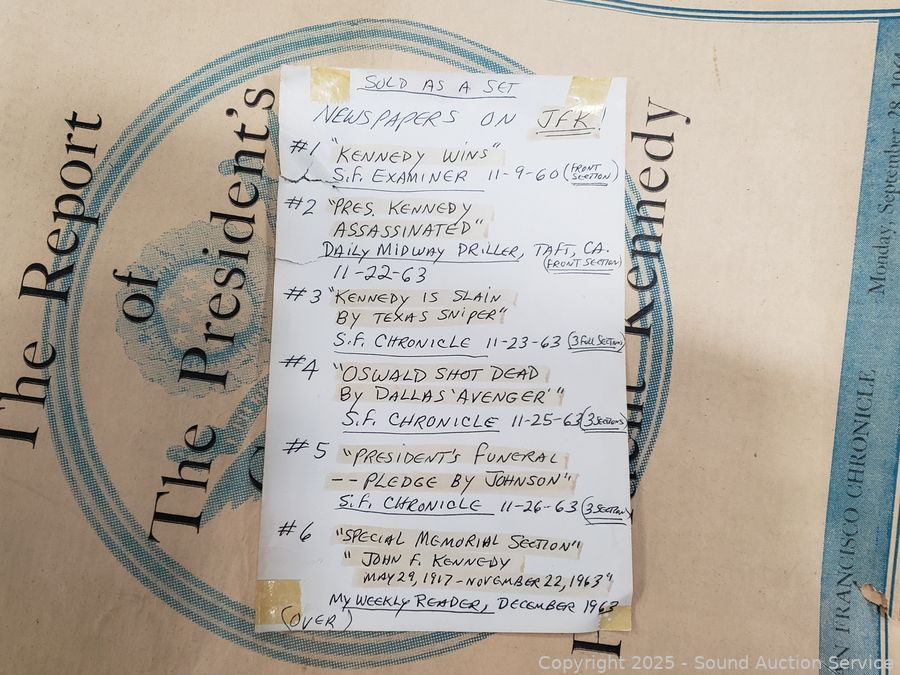 SOLD AS A SET
NEWSPAPERS ON JFK!
#1 "KENNEDY WINS"
S.F. EXAMINER 11-9-60 (FRONT SECTION)
#2 "PRES. KENNEDY
ASSASSINATED"
DAILY MIDWAY DRILLER, TAFT, CA.
(FRONT SECTION)
11-22-63
#3 "KENNEDY IS SLAIN
BY TEXAS SNIPER"
S.F. CHRONICLE 11-23-63 (3 Full Sections)
#4 "OSWALD SHOT DEAD
BY DALLAS 'AVENGER'"
S.F. CHRONICLE 11-25-63 (3 Sections)
#5 "PRESIDENT'S FUNERAL
-- PLEDGE BY JOHNSON"
S.F. CHRONICLE 11-26-63 (3 Section
#6 "SPECIAL MEMORIAL SECTION"
" JOHN F. KENNEDY
MAY 29, 1917 - NOVEMBER 22, 1963"
MY WEEKLY READER, DECEMBER 1963
(OVER)
The Report
of
The President's
Kennedy
Monday, September 28, 1964
SAN FRANCISCO CHRONICLE
Copyright 2025 - Sound Auction Service